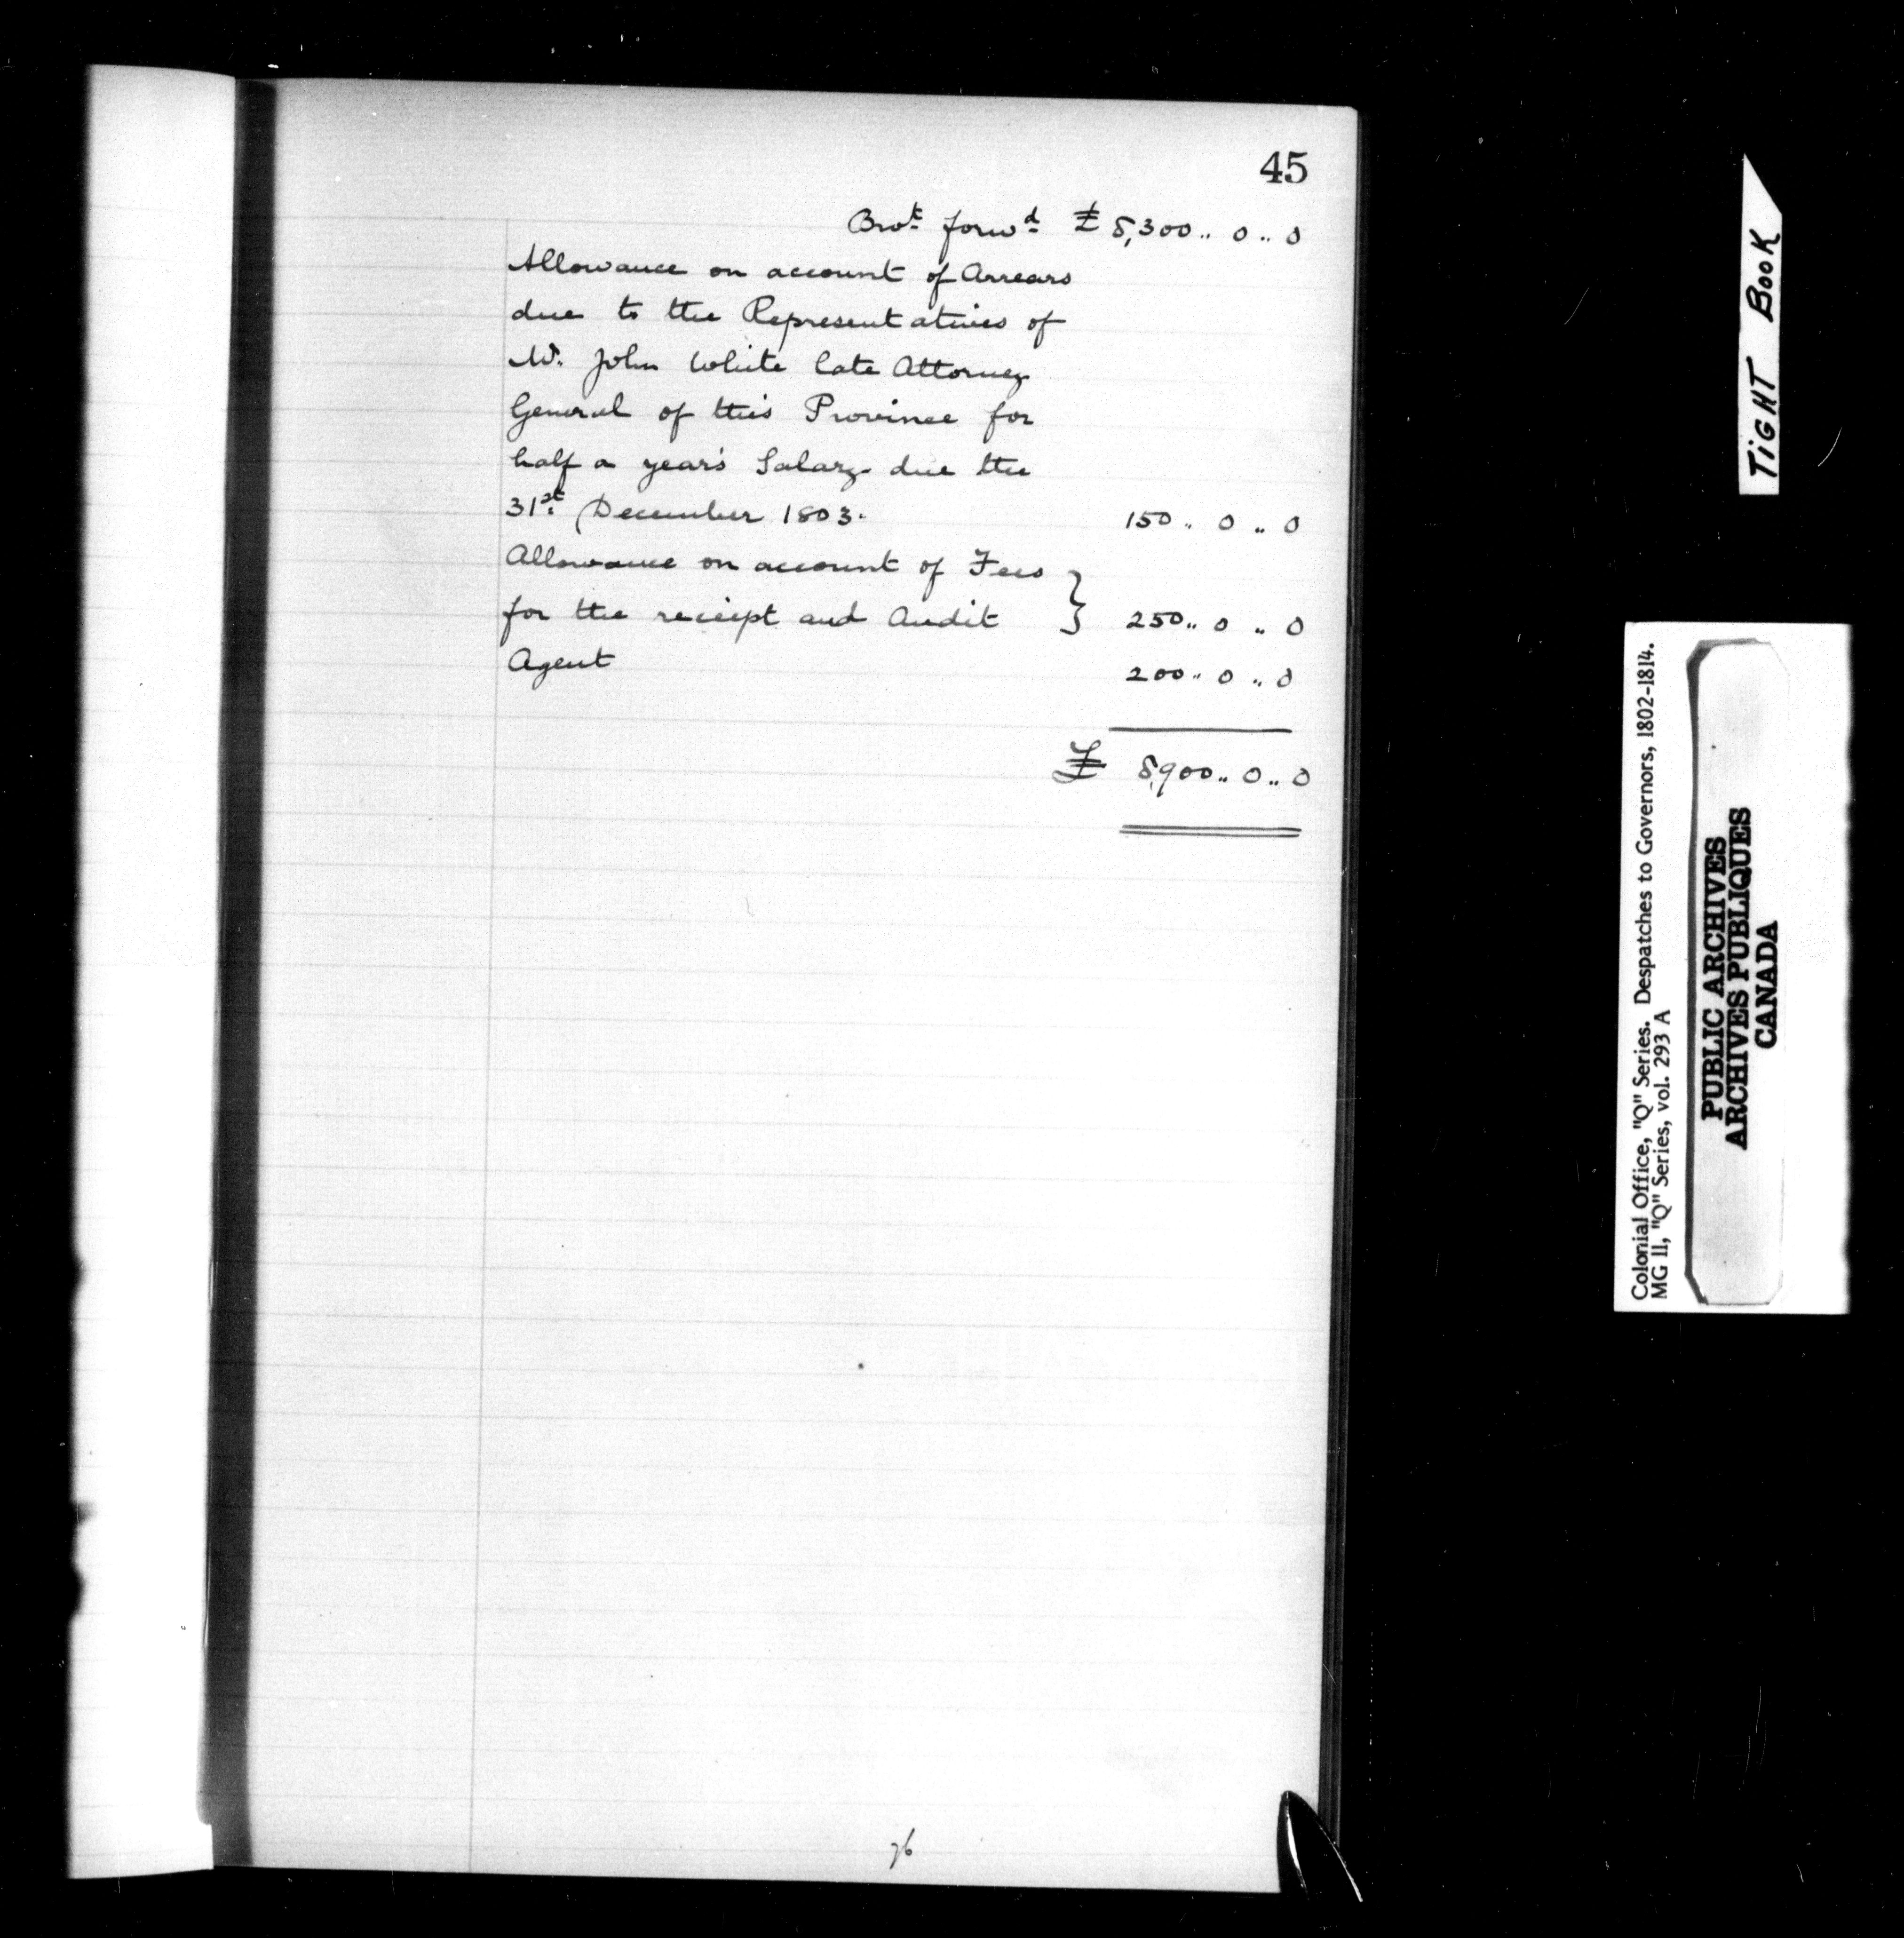 45
Brot. forwd. £ 8,300 .. 0 .. 0
Allowance on account of Arrears
due to the Representatives of
Mr. John White late Attorney
General of this Province for
half a year's Salary due the
31st. December 1803. 150 .. 0 .. 0
Allowance on account of Fees
for the receipt and Audit } 250 .. 0 .. 0
Agent 200 .. 0 .. 0
£ 8,900 .. 0 .. 0
76
TiGHT BooK
Colonial Office, "Q" Series. Despatches to Governors, 1802-1814.
MG 11, "Q" Series, vol. 293 A
PUBLIC ARCHIVES
ARCHIVES PUBLIQUES
CANADA